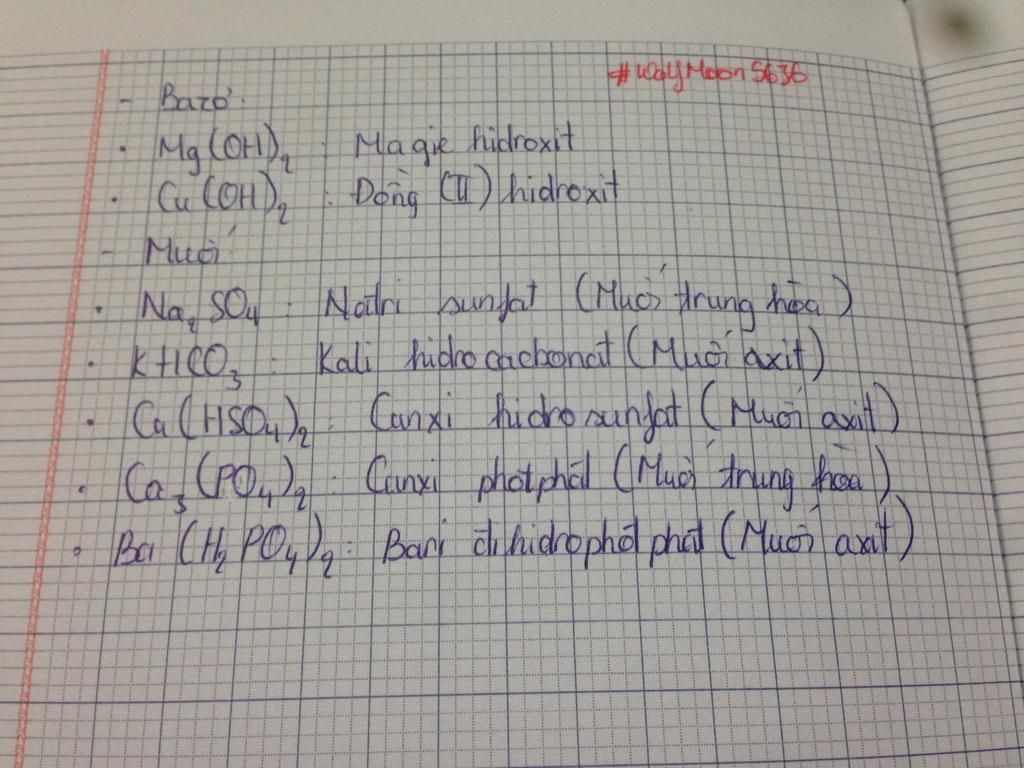 #WolfMoon5636
- Bazơ:
• Mg(OH)₂ : Magie hidroxit
• Cu(OH)₂ : Đồng (II) hidroxit
- Muối
• Na₂SO₄ : Natri sunfat (Muối trung hòa)
• KHCO₃ : Kali hidrocacbonat (Muối axit)
• Ca(HSO₄)₂ : Canxi hidrosunfat (Muối axit)
• Ca₃(PO₄)₂ : Canxi photphat (Muối trung hòa)
• Ba(H₂PO₄)₂ : Bari đihidrophotphat (Muối axit)